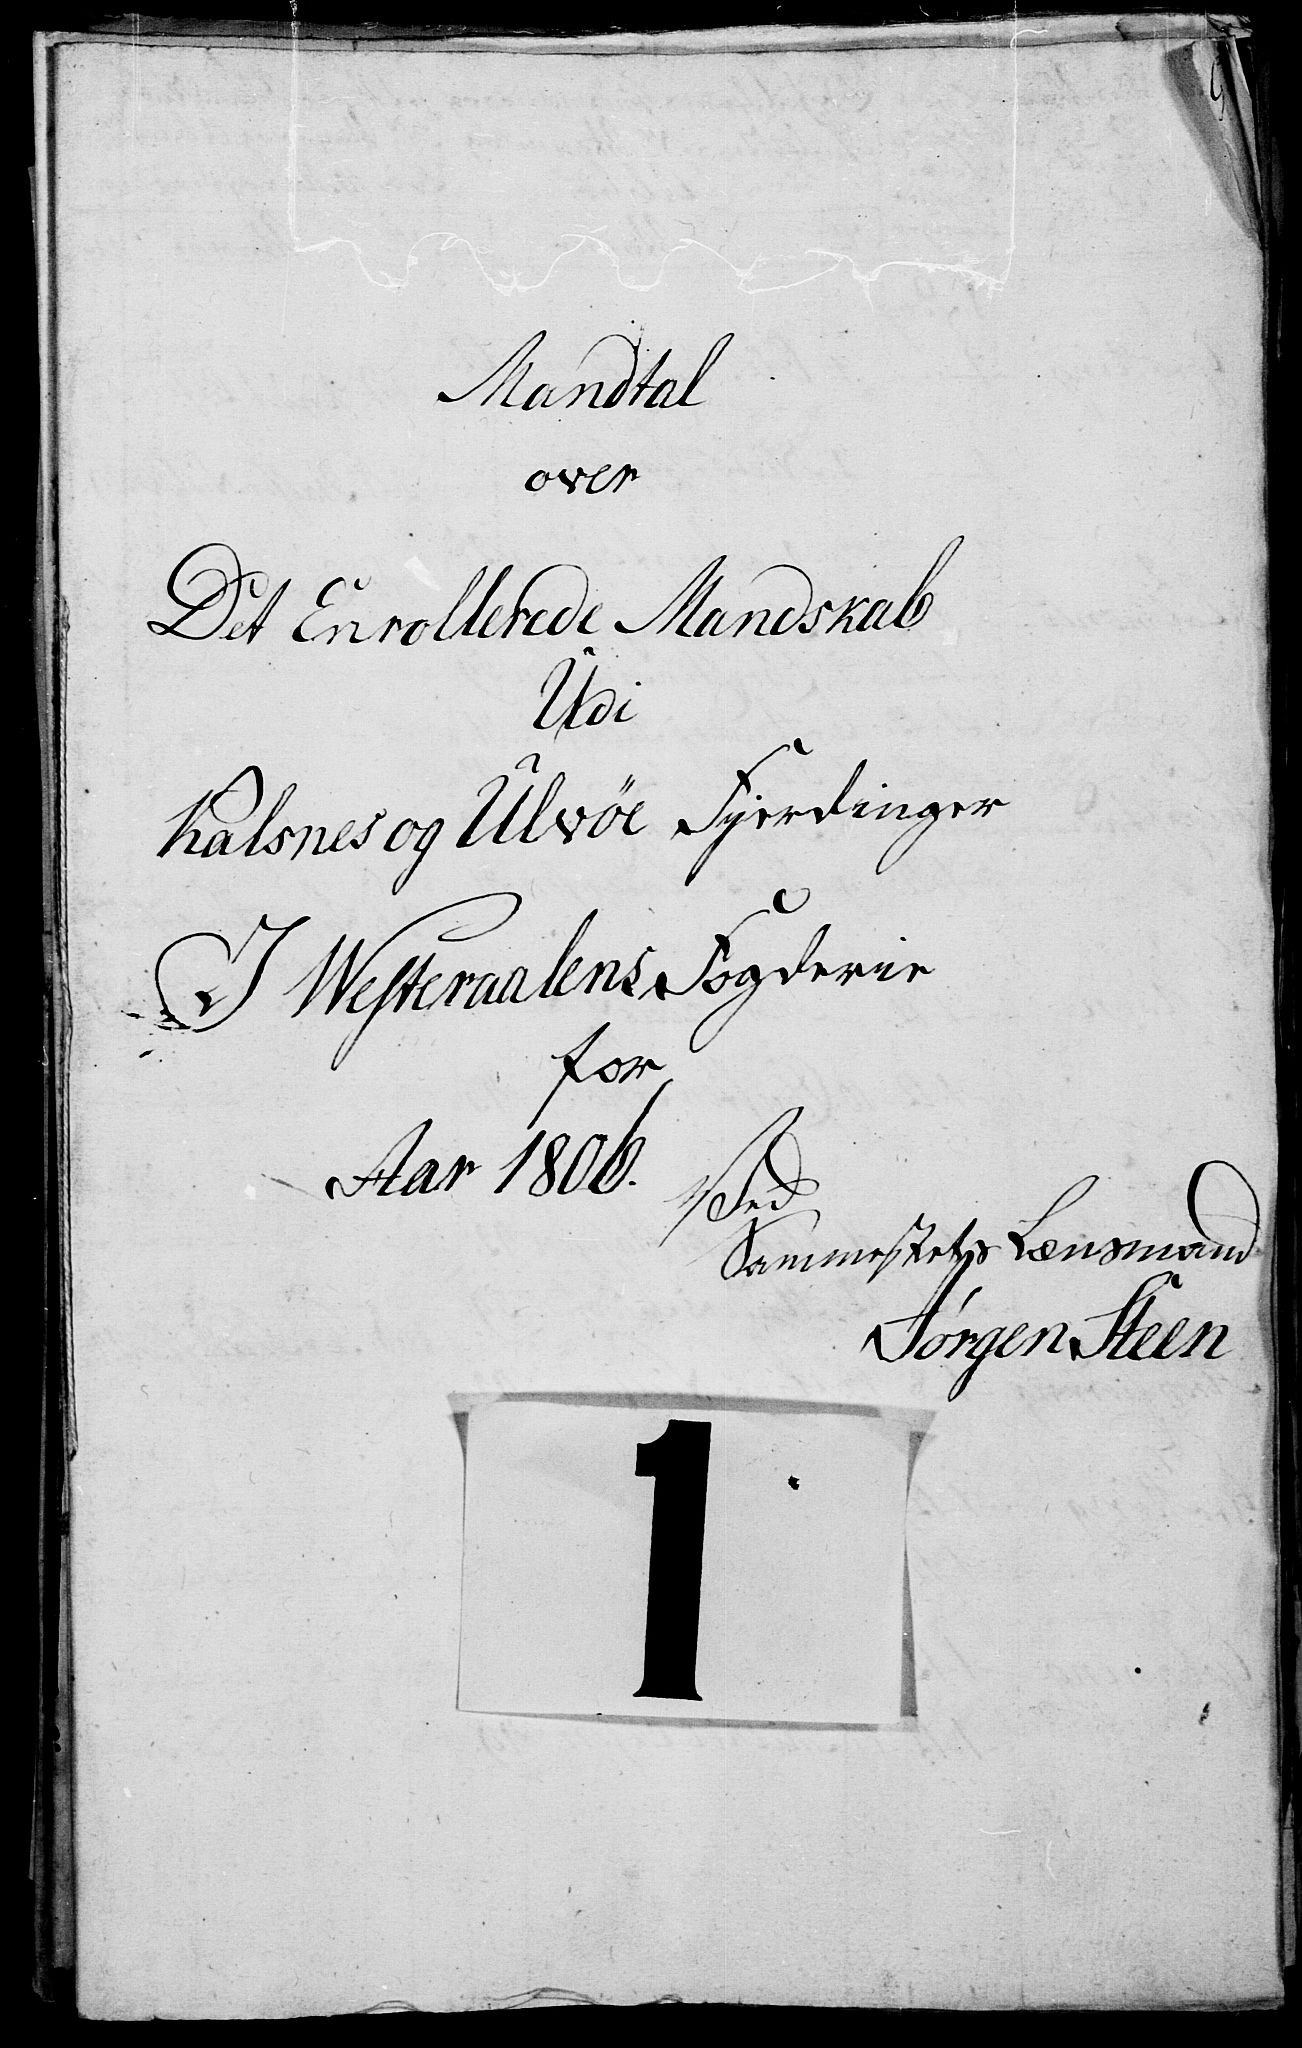 Mandtal
over
Det Enrollerede Mandskab
Udi
Kalsnes og Ulvöe Fjerdinger
I Westeraalens Fogderie
for
Aar 1806.
Ved
Sammestets Lænsmand
Jørgen Steen
1